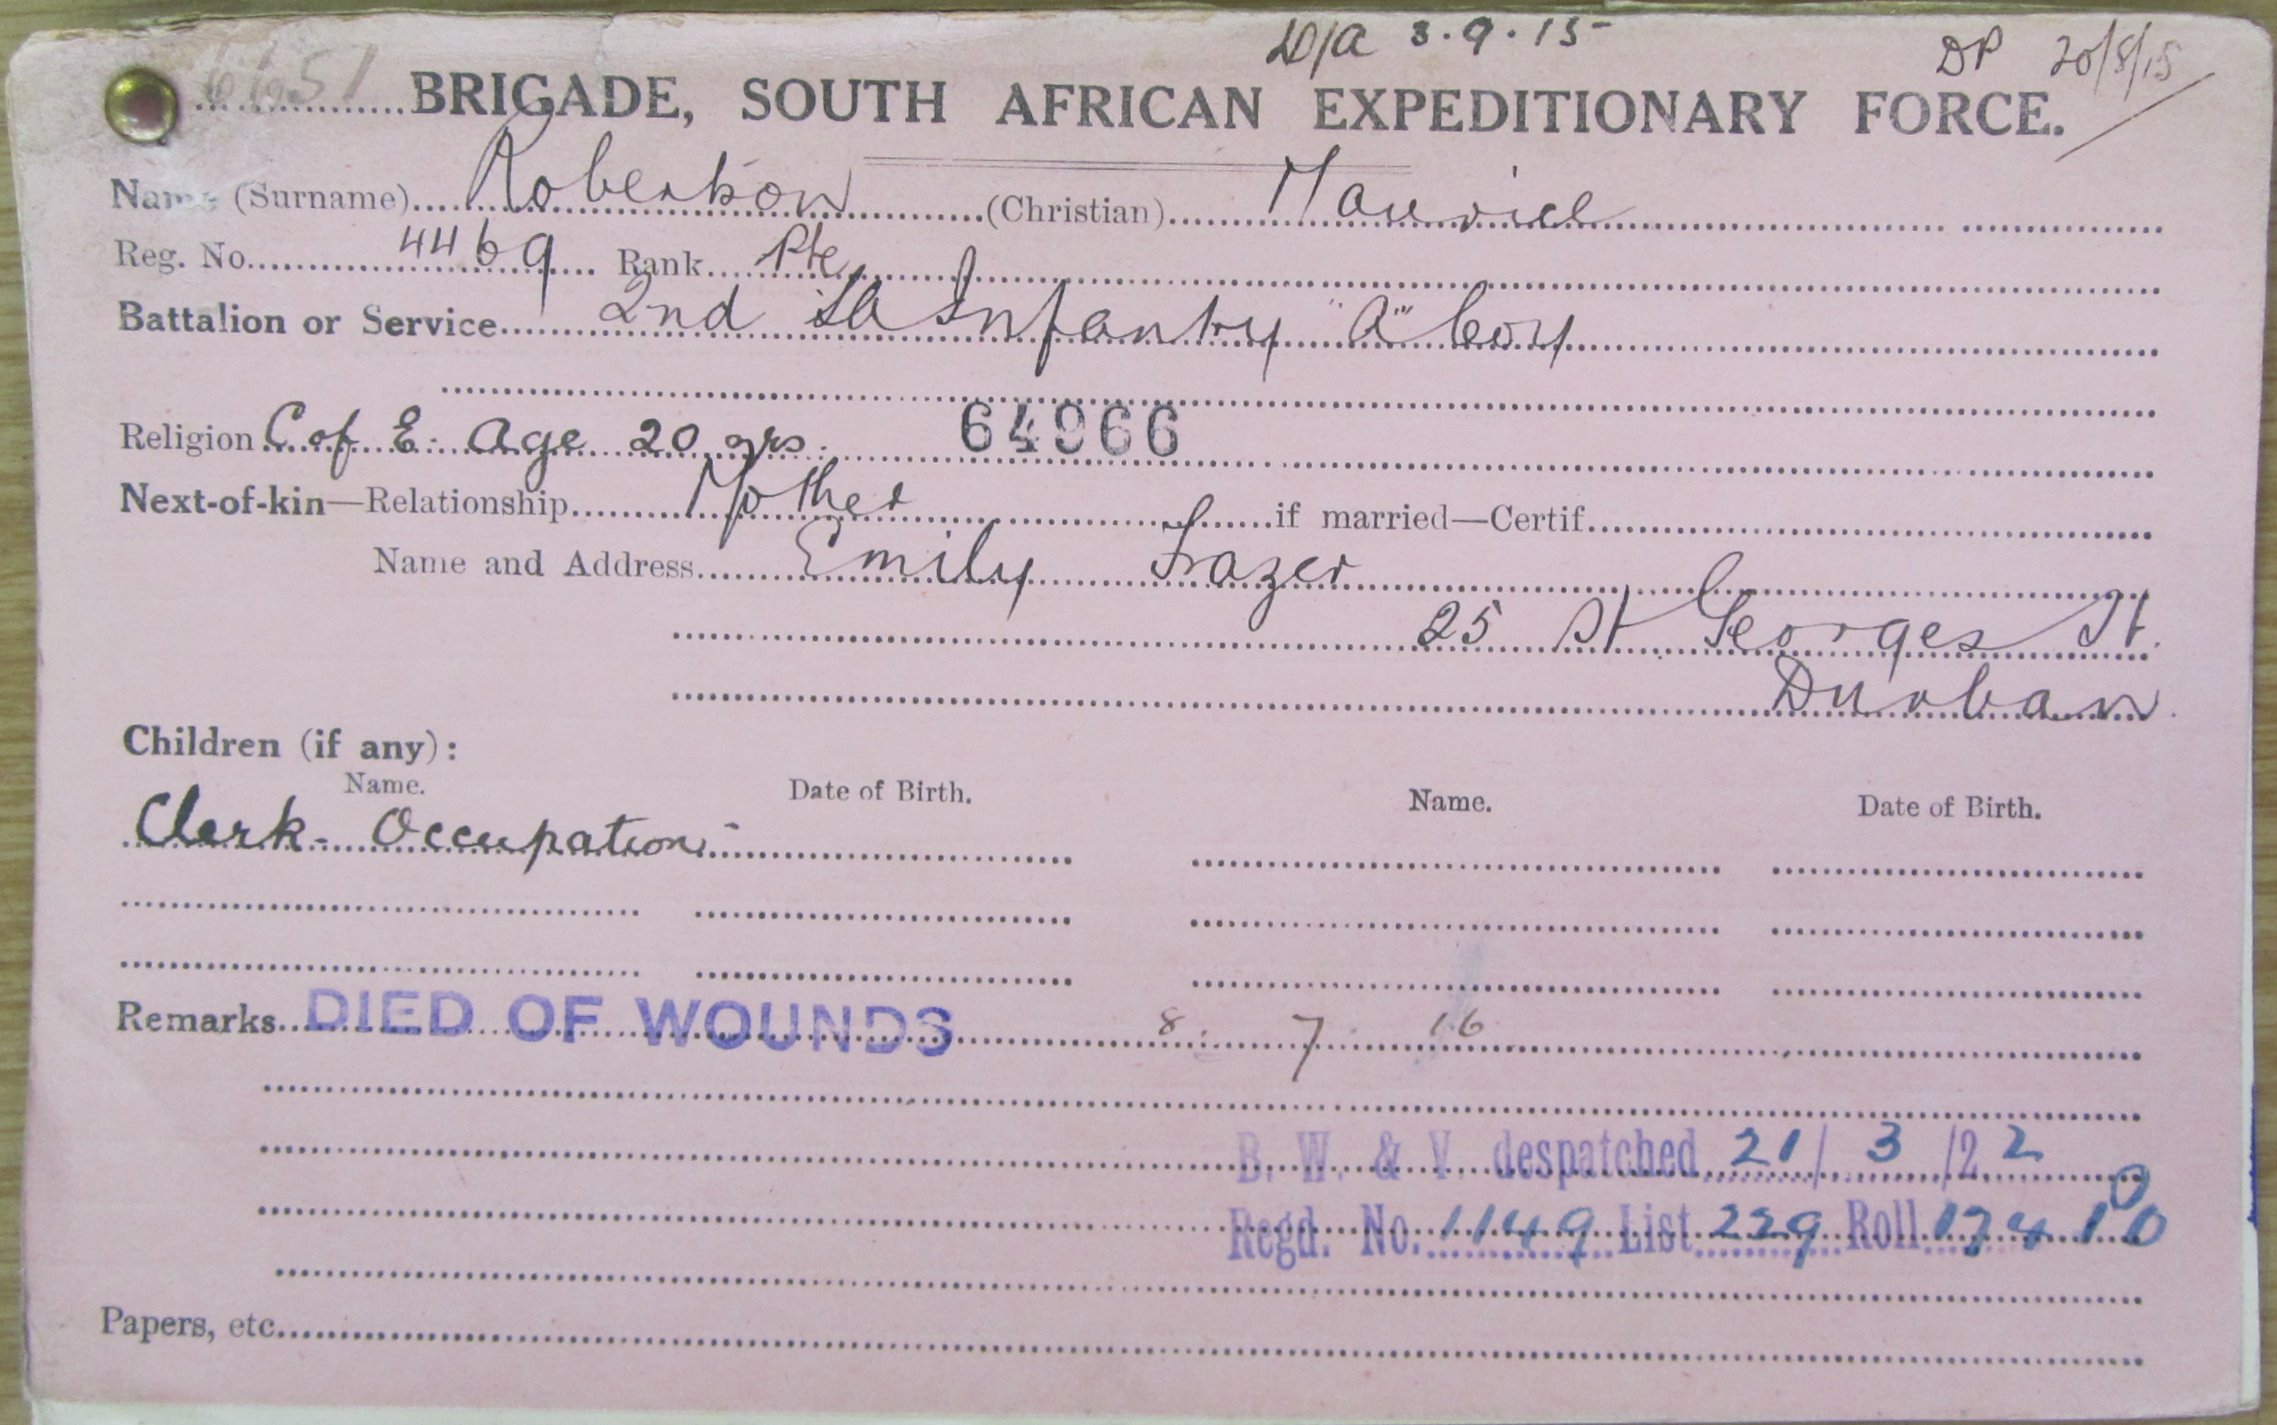 D/A 3.9.15 DP 20/8/15
BRIGADE, SOUTH AFRICAN EXPEDITIONARY FORCE.
Name (Surname) Robertson (Christian) Maurice
Reg. No. 4469 Rank Pte
Battalion or Service 2nd SA Infantry "A" Coy
Religion C of E. Age 20 yrs. 64966
Next-of-kin—Relationship Mother if married—Certif.
Name and Address Emily Frazer
25 St Georges St.
Durban
Children (if any):
Name. Date of Birth. Name. Date of Birth.
Clerk - Occupation -
Remarks DIED OF WOUNDS 8. 7. 16
B. W. & V. despatched 21/3/22
Regd. No. 1149 List 229 Roll
Papers, etc.